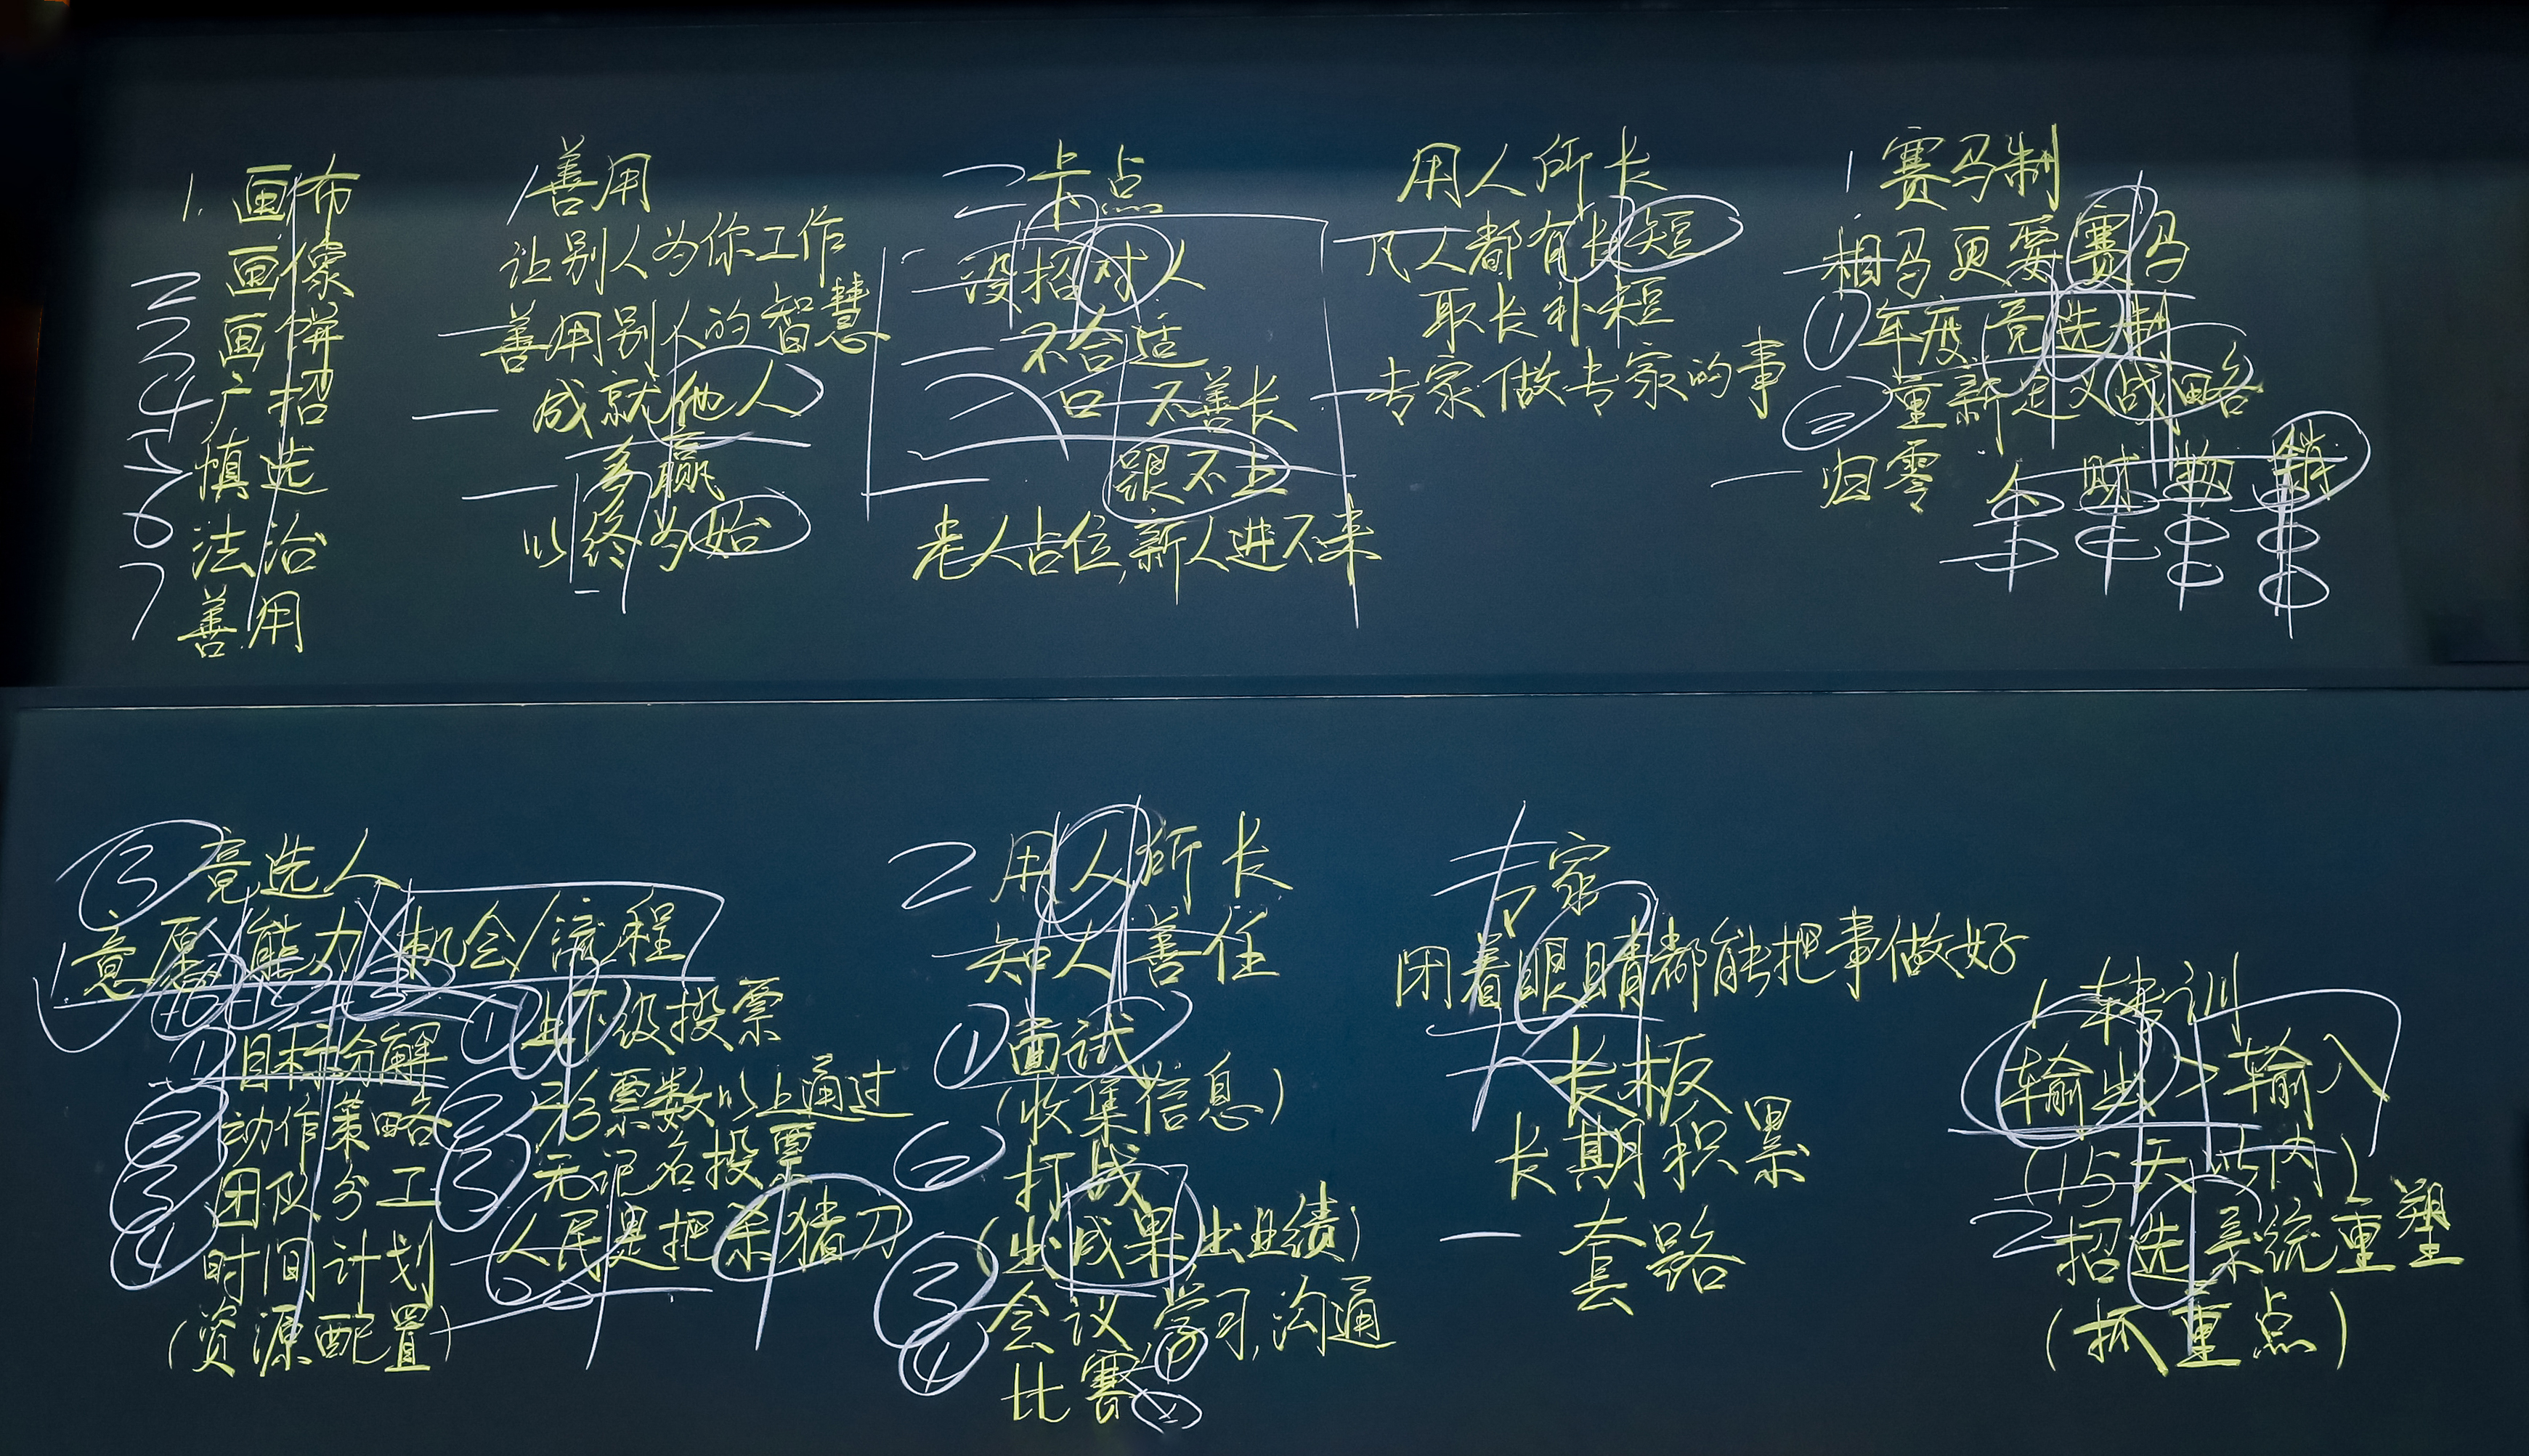 1. 画布
2 画像
3 画饼
4 广招
5 慎选
6 法治
7 善用
1 善用
让别人为你工作
善用别人的智慧
成就他人
多赢
以终为始
二 卡点
没招对人
不合适
不善长
跟不上
老人占位,新人进不来
用人所长
凡人都有长短
取长补短
专家做专家的事
1 赛马制
相马更要赛马
① 年度竞选制
② 重新定义战略
归零 人 财 物 销
③ 竞选人
意愿/能力/机会/流程
① 目标分解
② 动作策略
③ 团队分工
④ 时间计划
(资源配置)
① 上下级投票
② 票数以上通过
③ 无记名投票
人民是把杀猪刀
2 用人所长
知人善任
① 面试
(收集信息)
② 打战
(出成果出业绩)
③ 会议,学习,沟通
④ 比赛
专家
闭着眼睛都能把事做好
长板
长期积累
套路
1 转训
输出>输入
(15天 内)
2 招选系统重塑
(抓重点)